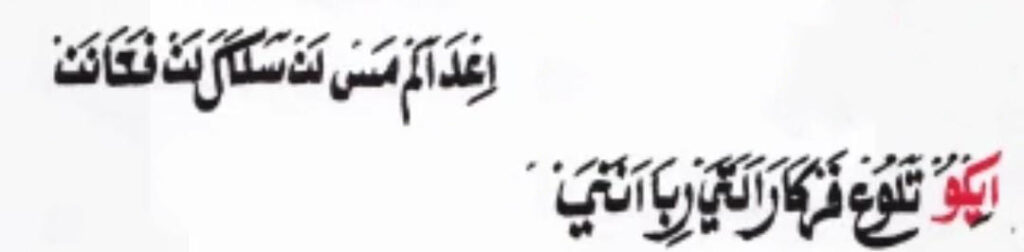 اِغْدَالَمْ مَسْ لَنْ سَلَاكَ لَنْ فَغَانَنْ
اِيكُوْ تَلُوْغْ فَرْكَارَ رِبَا